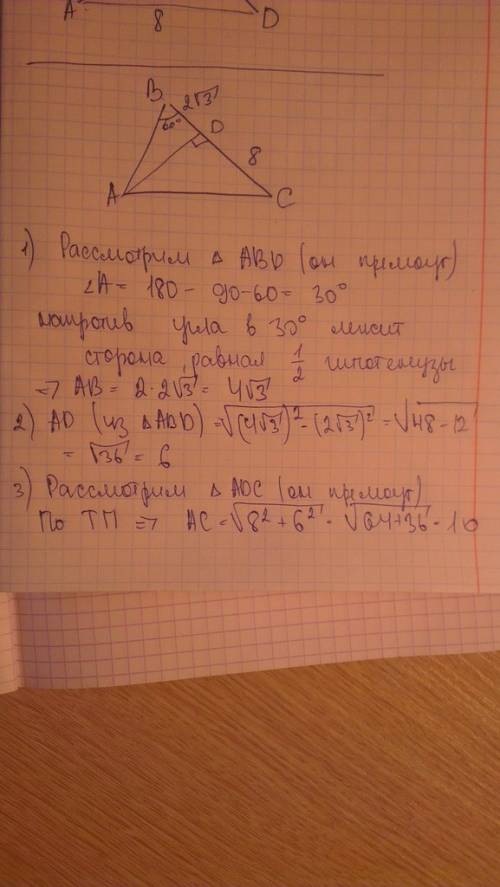 A 8 D
B 2√3
60° D
8
A C
1) Рассмотрим △ ABD (он прямоуг)
∠A = 180 - 90-60= 30°
напротив угла в 30° лежит
сторона равная 1/2 гипотенузы
=> AB = 2·2√3 = 4√3
2) AD (из △ABD) = √((4√3)² - (2√3)²) = √(48-12)
= √36 = 6
3) Рассмотрим △ ADC (он прямоуг)
По ТП => AC = √(8²+6²) = √(64+36) = 10